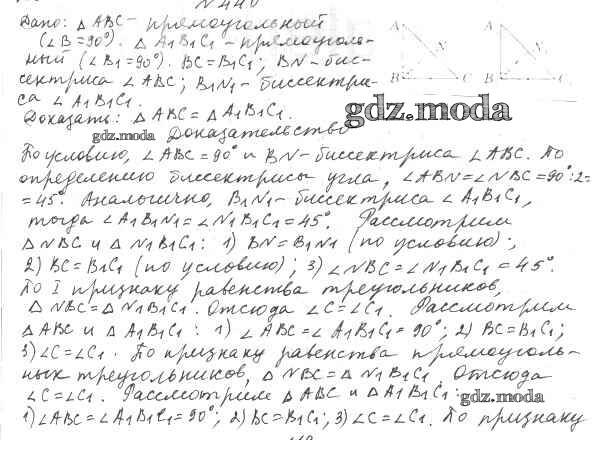 №440
Дано: △ABC - прямоугольный
(∠B=90°). △A1B1C1 - прямоуголь-
ный (∠B1=90°). BC=B1C1; BN - бис-
сектриса ∠ABC; B1N1 - биссектри-
са ∠A1B1C1.
Доказать: △ABC=△A1B1C1.
A
N
B
C
A
N
B
C
gdz.moda
gdz.moda
Доказательство
По условию, ∠ABC=90° и BN - биссектриса ∠ABC. По
определению биссектрисы угла, ∠ABN=∠NBC=90°:2=
=45°. Аналогично, B1N1 - биссектриса ∠A1B1C1,
тогда ∠A1B1N1=∠N1B1C1=45°. Рассмотрим
△NBC и △N1B1C1: 1) BN=B1N1 (по условию);
2) BC=B1C1 (по условию); 3) ∠NBC=∠N1B1C1=45°.
По I признаку равенства треугольников,
△NBC=△N1B1C1. Отсюда ∠C=∠C1. Рассмотрим
△ABC и △A1B1C1: 1) ∠ABC=∠A1B1C1=90°; 2) BC=B1C1;
3) ∠C=∠C1. По признаку равенства прямоуголь-
ных треугольников, △NBC=△N1B1C1. Отсюда
∠C=∠C1. Рассмотрим △ABC и △A1B1C1:
gdz.moda
1) ∠ABC=∠A1B1C1=90°; 2) BC=B1C1; 3) ∠C=∠C1. По признаку